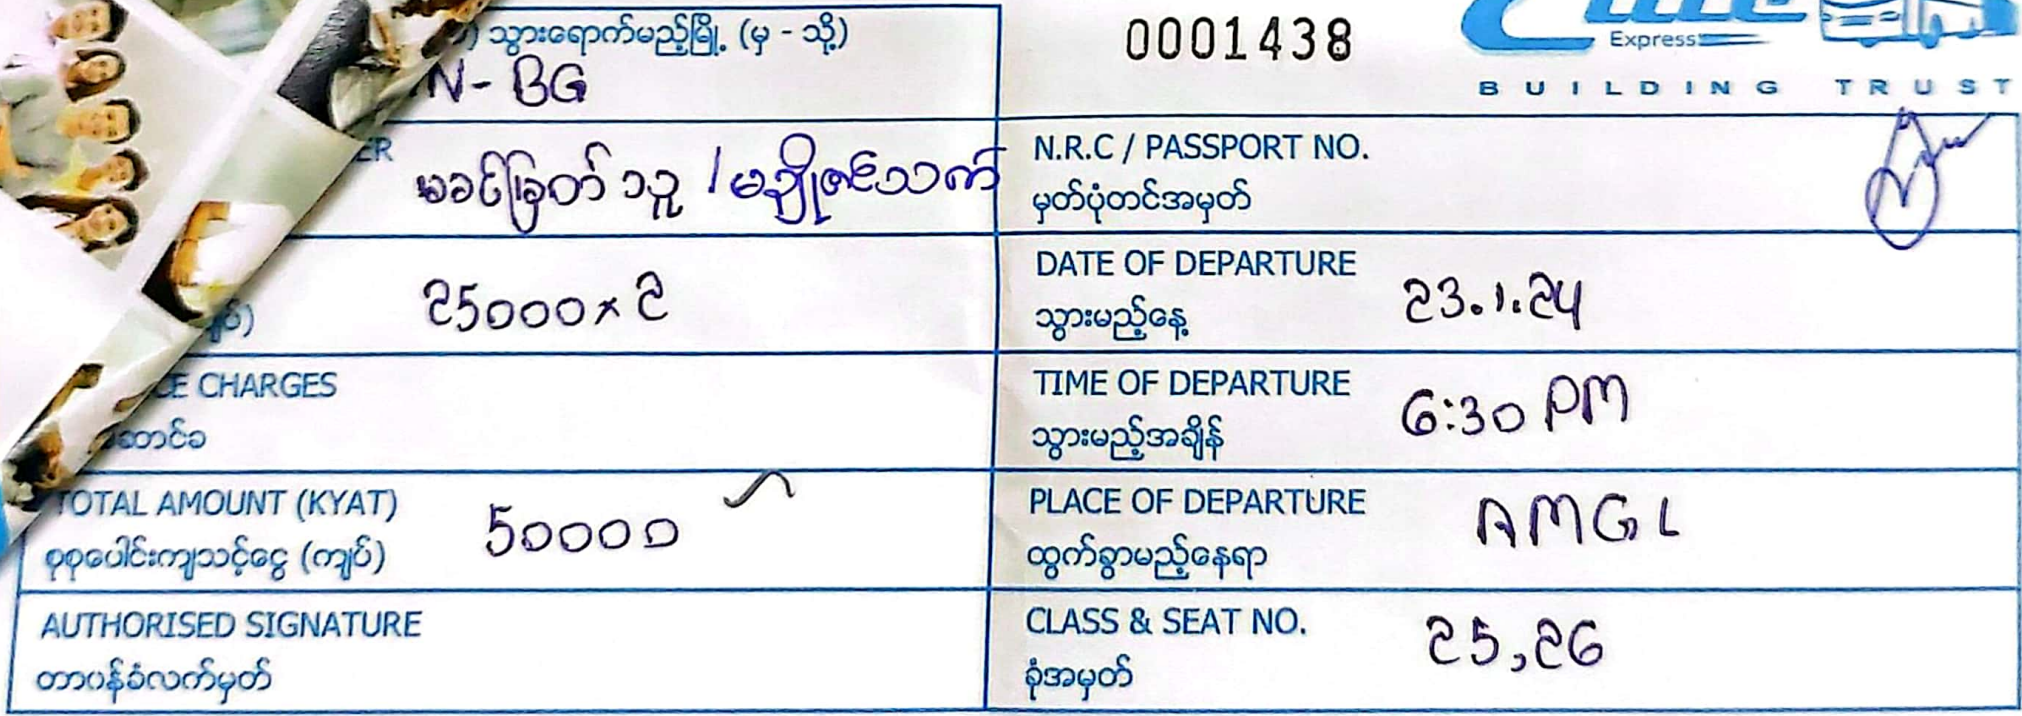 သွားရောက်မည့်မြို့ (မှ - သို့)
N - BG
0001438
Elite
Express
BUILDING TRUST
မခင်ခြတ် သူ / မချိုဇင်သက်
N.R.C / PASSPORT NO.
မှတ်ပုံတင်အမှတ်
25000 x 2
DATE OF DEPARTURE
သွားမည့်နေ့
23.1.24
CHARGES
TIME OF DEPARTURE
သွားမည့်အချိန်
6:30 PM
TOTAL AMOUNT (KYAT)
စုစုပေါင်းကျသင့်ငွေ (ကျပ်)
50000
PLACE OF DEPARTURE
ထွက်ခွာမည့်နေရာ
AMGL
AUTHORISED SIGNATURE
တာဝန်ခံလက်မှတ်
CLASS & SEAT NO.
ခုံအမှတ်
25,26